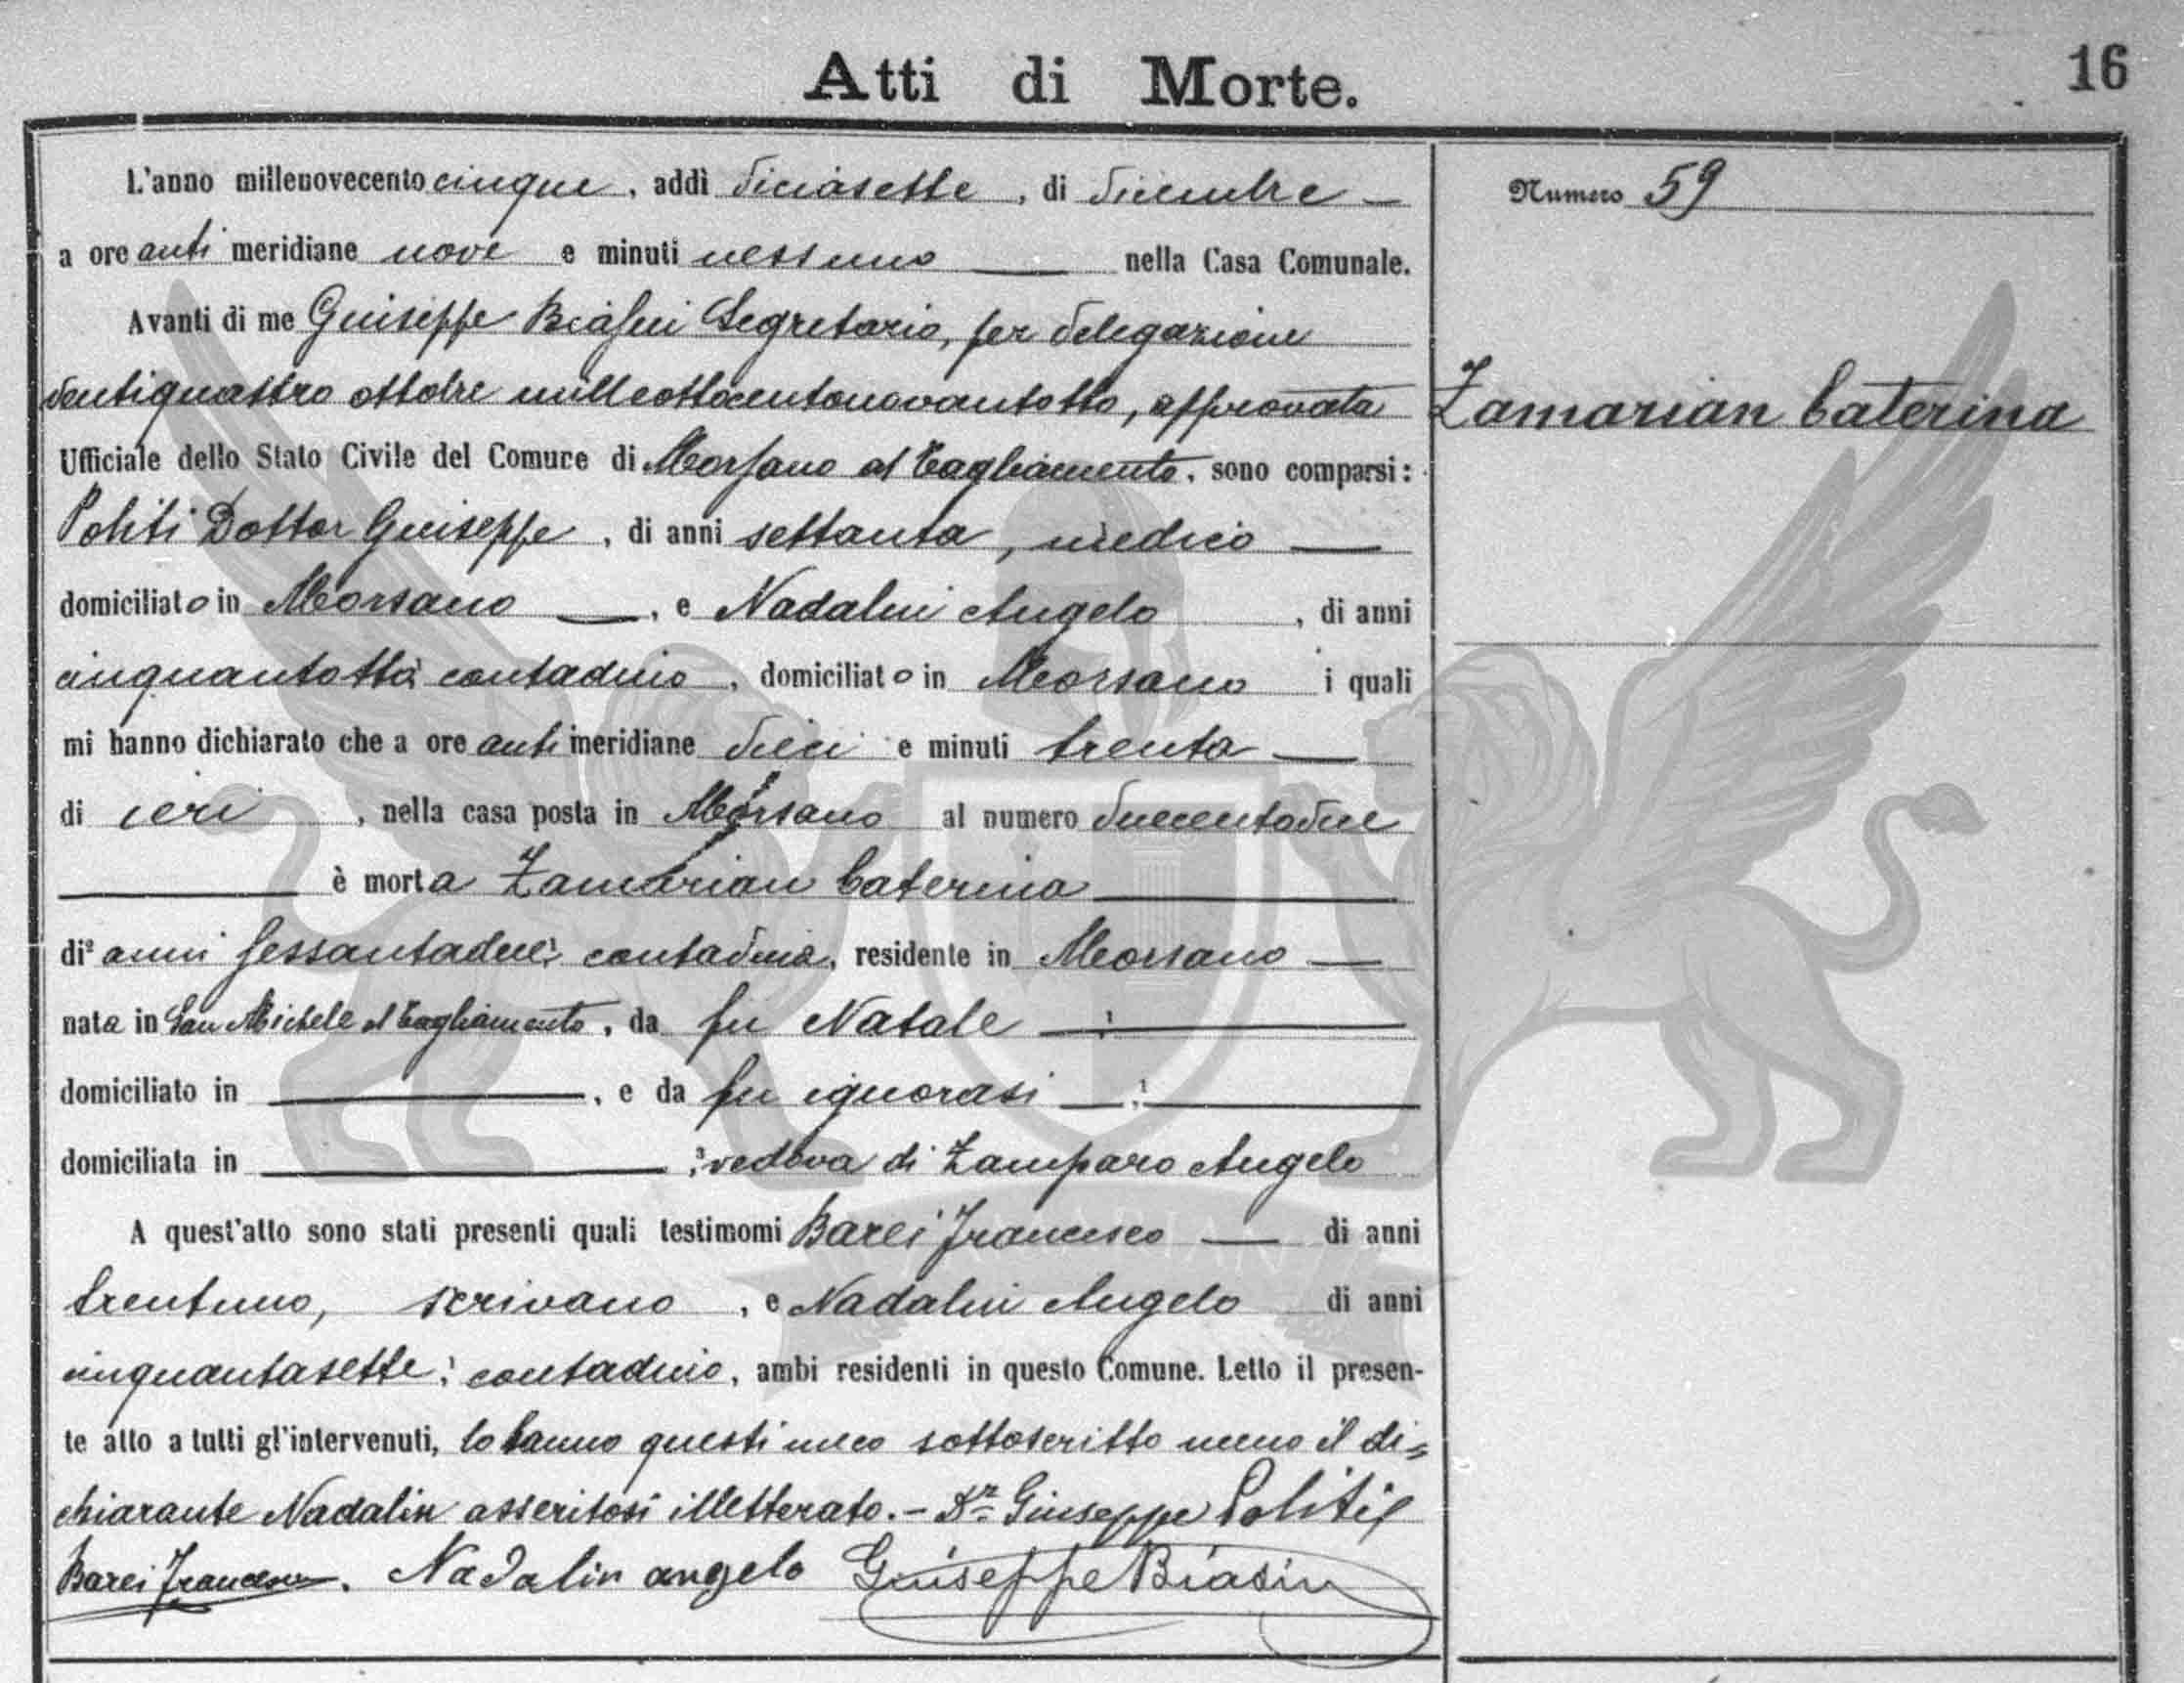 Atti di Morte.
16
L'anno millenovecento cinque, addì diciasette, di dicembre —
a ore anti meridiane nove e minuti nessuno — nella Casa Comunale.
Avanti di me Giuseppe Biasin Segretario, per delegazione
ventiquattro ottobre milleottocentonovantotto, approvata
Ufficiale dello Stato Civile del Comune di Morsano al Tagliamento, sono comparsi:
Politi Dottor Giuseppe, di anni settanta, medico —
domiciliato in Morsano —, e Nadalin Angelo, di anni
cinquantotto contadino, domiciliato in Morsano i quali
mi hanno dichiarato che a ore anti meridiane dieci e minuti trenta —
di ieri, nella casa posta in Morsano al numero duecentodue
— è morta Zamarian Caterina —
di anni sessantadue, contadina, residente in Morsano —
nata in San Michele al Tagliamento, da fu Natale —
domiciliato in —, e da fu ignorasi —
domiciliata in —; vedova di Zamparo Angelo
A quest'atto sono stati presenti quali testimomi Barei Francesco — di anni
trentuno, scrivano, e Nadalin Angelo di anni
cinquantasette, contadino, ambi residenti in questo Comune. Letto il presen-
te atto a tutti gl'intervenuti, lo hanno questi meco sottoscritto meno il di=
chiarante Nadalin asseritosi illetterato. – Dr. Giuseppe Politi
Barei Francesco. Nadalin angelo Giuseppe Biasin
Numero 59
Zamarian Caterina